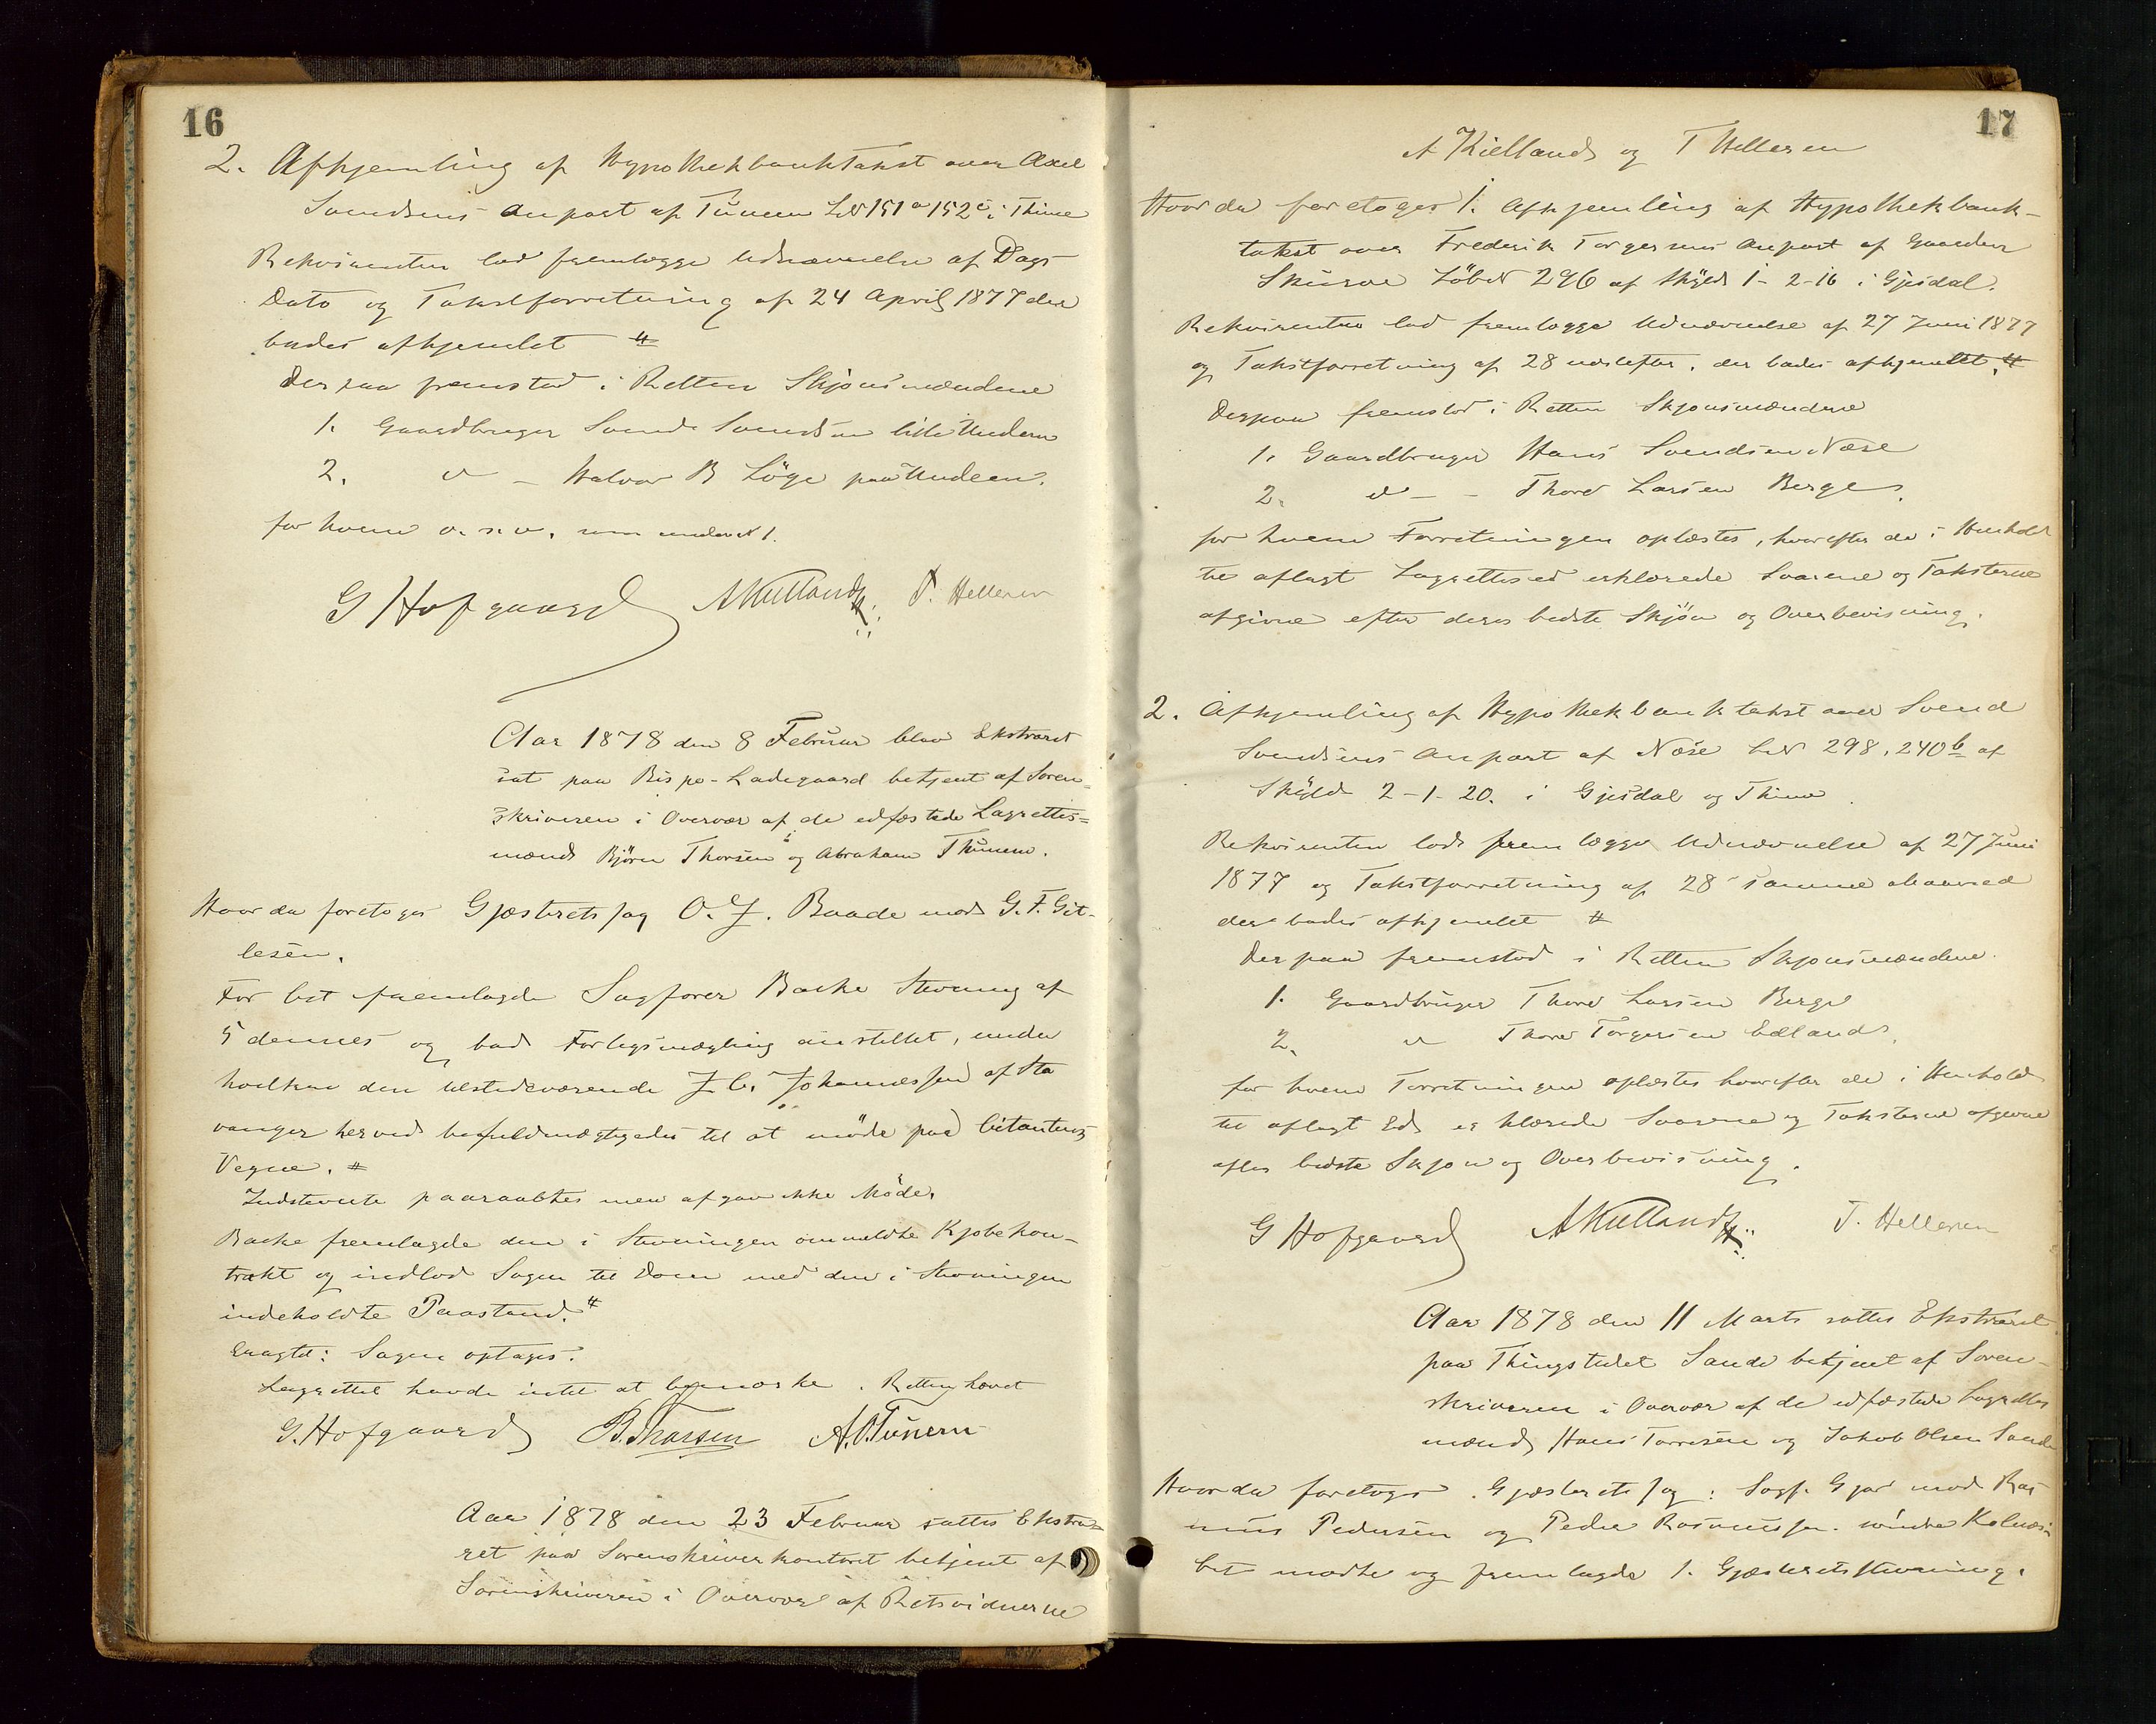 16
2. Afhjemling af Hypothekbanktakst over Axel
Svendsens Anpart af Tunem LN 151 a 152 c i Thime
Rekvirenten lod fremlægge Udnævnelse af Dags
Dato og Takstforretning af 24 April 1877 der
bades afhjemlet #
Derpaa fremstod i Retten Skjønsmændene
1. Gaardbruger Svend Svendsen lille
2. " - Halvor B Löge paa
for hvem o. s. v. som under N 1.
G Hofgaard A Kielland T. Helleren
Aar 1878 den 8 Februar blev Ekstraret
sat paa Bispe-Ladegaard betjent af Soren-
skriveren i Overvær af de edfæstede Lagrettes=
mænd Björn Thorsen og Abraham Thunem.
Hvor da foretoges Gjæsteretssag O. J. Baade mod G. F. Git-
lesen.
For Cit fremlagde Sagfører Backe Stevning af
5 dennes og bad Forligsmægling anstillet, under
hvilken den tilstedeværende J. C. Johannessen af Sta
vanger herved befuldmægtigedes til at möde paa Citantens
Vegne. #
Indstevnte paaraabtes men afgav ikke Möde.
Backe fremlagde den i Stevningen ommeldte Kjøbekon-
trakt og indlod Sagen til Dom med den i Stevningen
indeholdte Paastand. #
Eragtet: Sagen optages.
Lagrettet havde intet at bemærke. Retten hævet
G. Hofgaard B. Thorsen A. O. Tunem
Aar 1878 den 23 Februar sattes Ekstra-
ret paa Sorenskriverkontoret betjent af
Sorenskriveren i Overvær af Retsvidnerne
17
A Kielland og T Helleren
Hvor da foretoges 1. Afhjemling af Hypothekbank-
takst over Frederik Torgersens Anpart af Gaarden
Skurve LöbeN 296 af Skyld 1-2-16 i Gjesdal.
Rekvirenten lod fremlægge Udnævnelse af 27 Juni 1877
og Takstforretning af 28 næstefter, der bades afhjemlet. #
Derpaa fremstod i Retten Skjønsmændene
1. Gaardbruger Hans Svendsen Næse
2. " - - Thore Larsen Berge
for hvem Forretningen oplæstes, hvorefter de i Henhold
til aflagt Lagrettesed erklærede Svarene og Taksterne
afgivne efter deres bedste Skjön og Overbevisning.
2. Afhjemling af Hypothekbanktakst over Svend
Svendsens Anpart af Næse LN 298, 240 b af
Skyld 2-1-20. i Gjesdal og Thime.
Rekvirenten lod fremlægge Udnævnelse af 27 Juni
1877 og Takstforretning af 28 samme Maaned
der bades afhjemlet #
Derpaa fremstod i Retten Skjønsmændene.
1. Gaardbruger Thore Larsen Berge
2. " Thore Torgersen Edland.
for hvem Forretningen oplæstes hvorefter de i Henhold
til aflagt Ed erklærede Svarene og Taksterne afgivne
efter bedste Skjøn og Overbevisning.
G Hofgaard A Kielland T. Helleren
Aar 1878 den 11 Marts sattes Ekstraret
paa Thingstedet Sande betjent af Soren-
skriveren i Overvær af de edfæstede Lagrettes
mænd Hans Torresen og Jakob Olsen Sande
Hvor da foretoges Gjæsteretssag: Sagf. Gjør mod Ras
mus Pedersen og Peder Rasmussen.
Cit mødte og fremlagde 1. Gjæsteretsstevning.